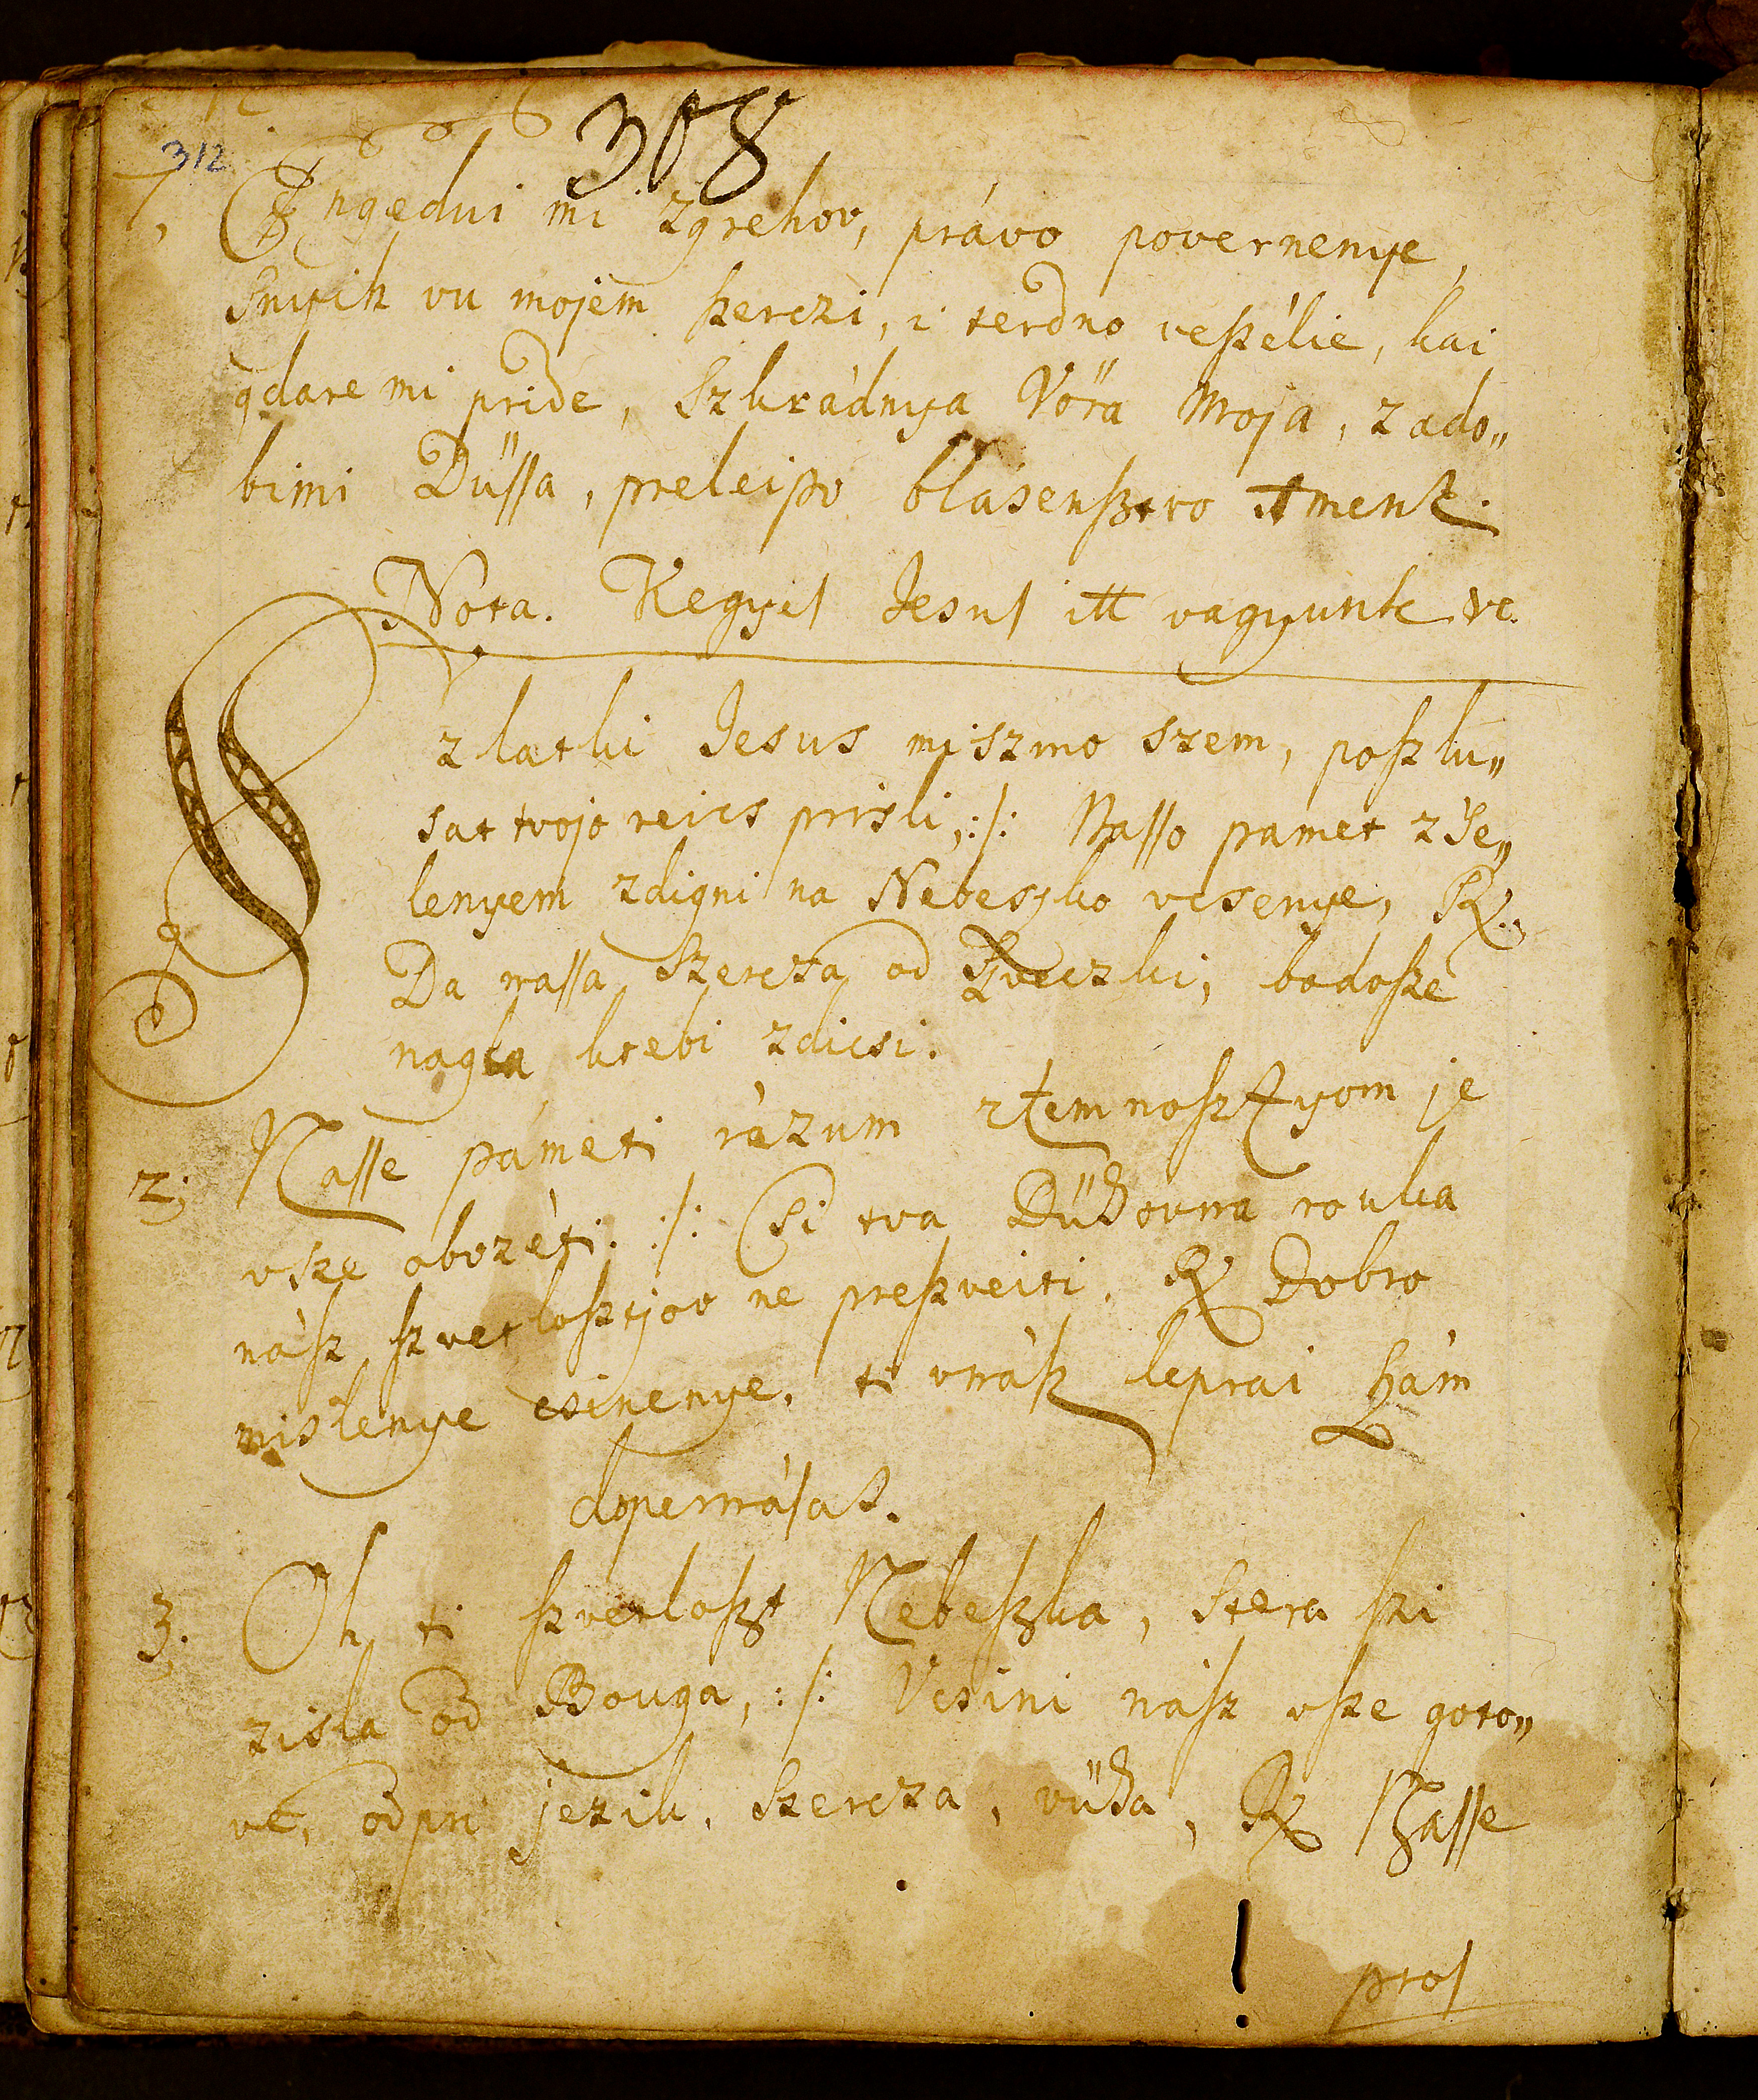 308
312
7, Engedui mi zgrehov, právo povernenye,
Snyih vu mojem ßerczi, i terdno veßélie, kai
gdare mi pride, Szkrádnya Vöra Moja, zado„
bimi Düssa, preleipo blásenßtvo Ament.
Nota. Kegyes Jesus itt vagyunk ve.
Szlatki Jesus miszmo szem, poszlu„
sat tvojo reics prisli, :/: Nasso pamet z'Se„
lenyem zdigni na Nebeszko vcsenye, R.
Da nassa Szercza od  bodosze
nagla, ktebi zdicsi.
2; Nasse pámeti rázum ztemnosztyom je
vsze obvzéti: :/: Csi tva Dühovna rouka
nász szvetlosztjov ne preszveiti, R Dobro
mislenye csinenye, ti vnász leprai Szám
dopernásas.
3. Oh ti szvetloszt Nebeszka, stera szi
zisla od Bouga, :/: Vcsini nász vsze goto„
ve, odpri jezik, Szercza, vüha, R Nasse
pros